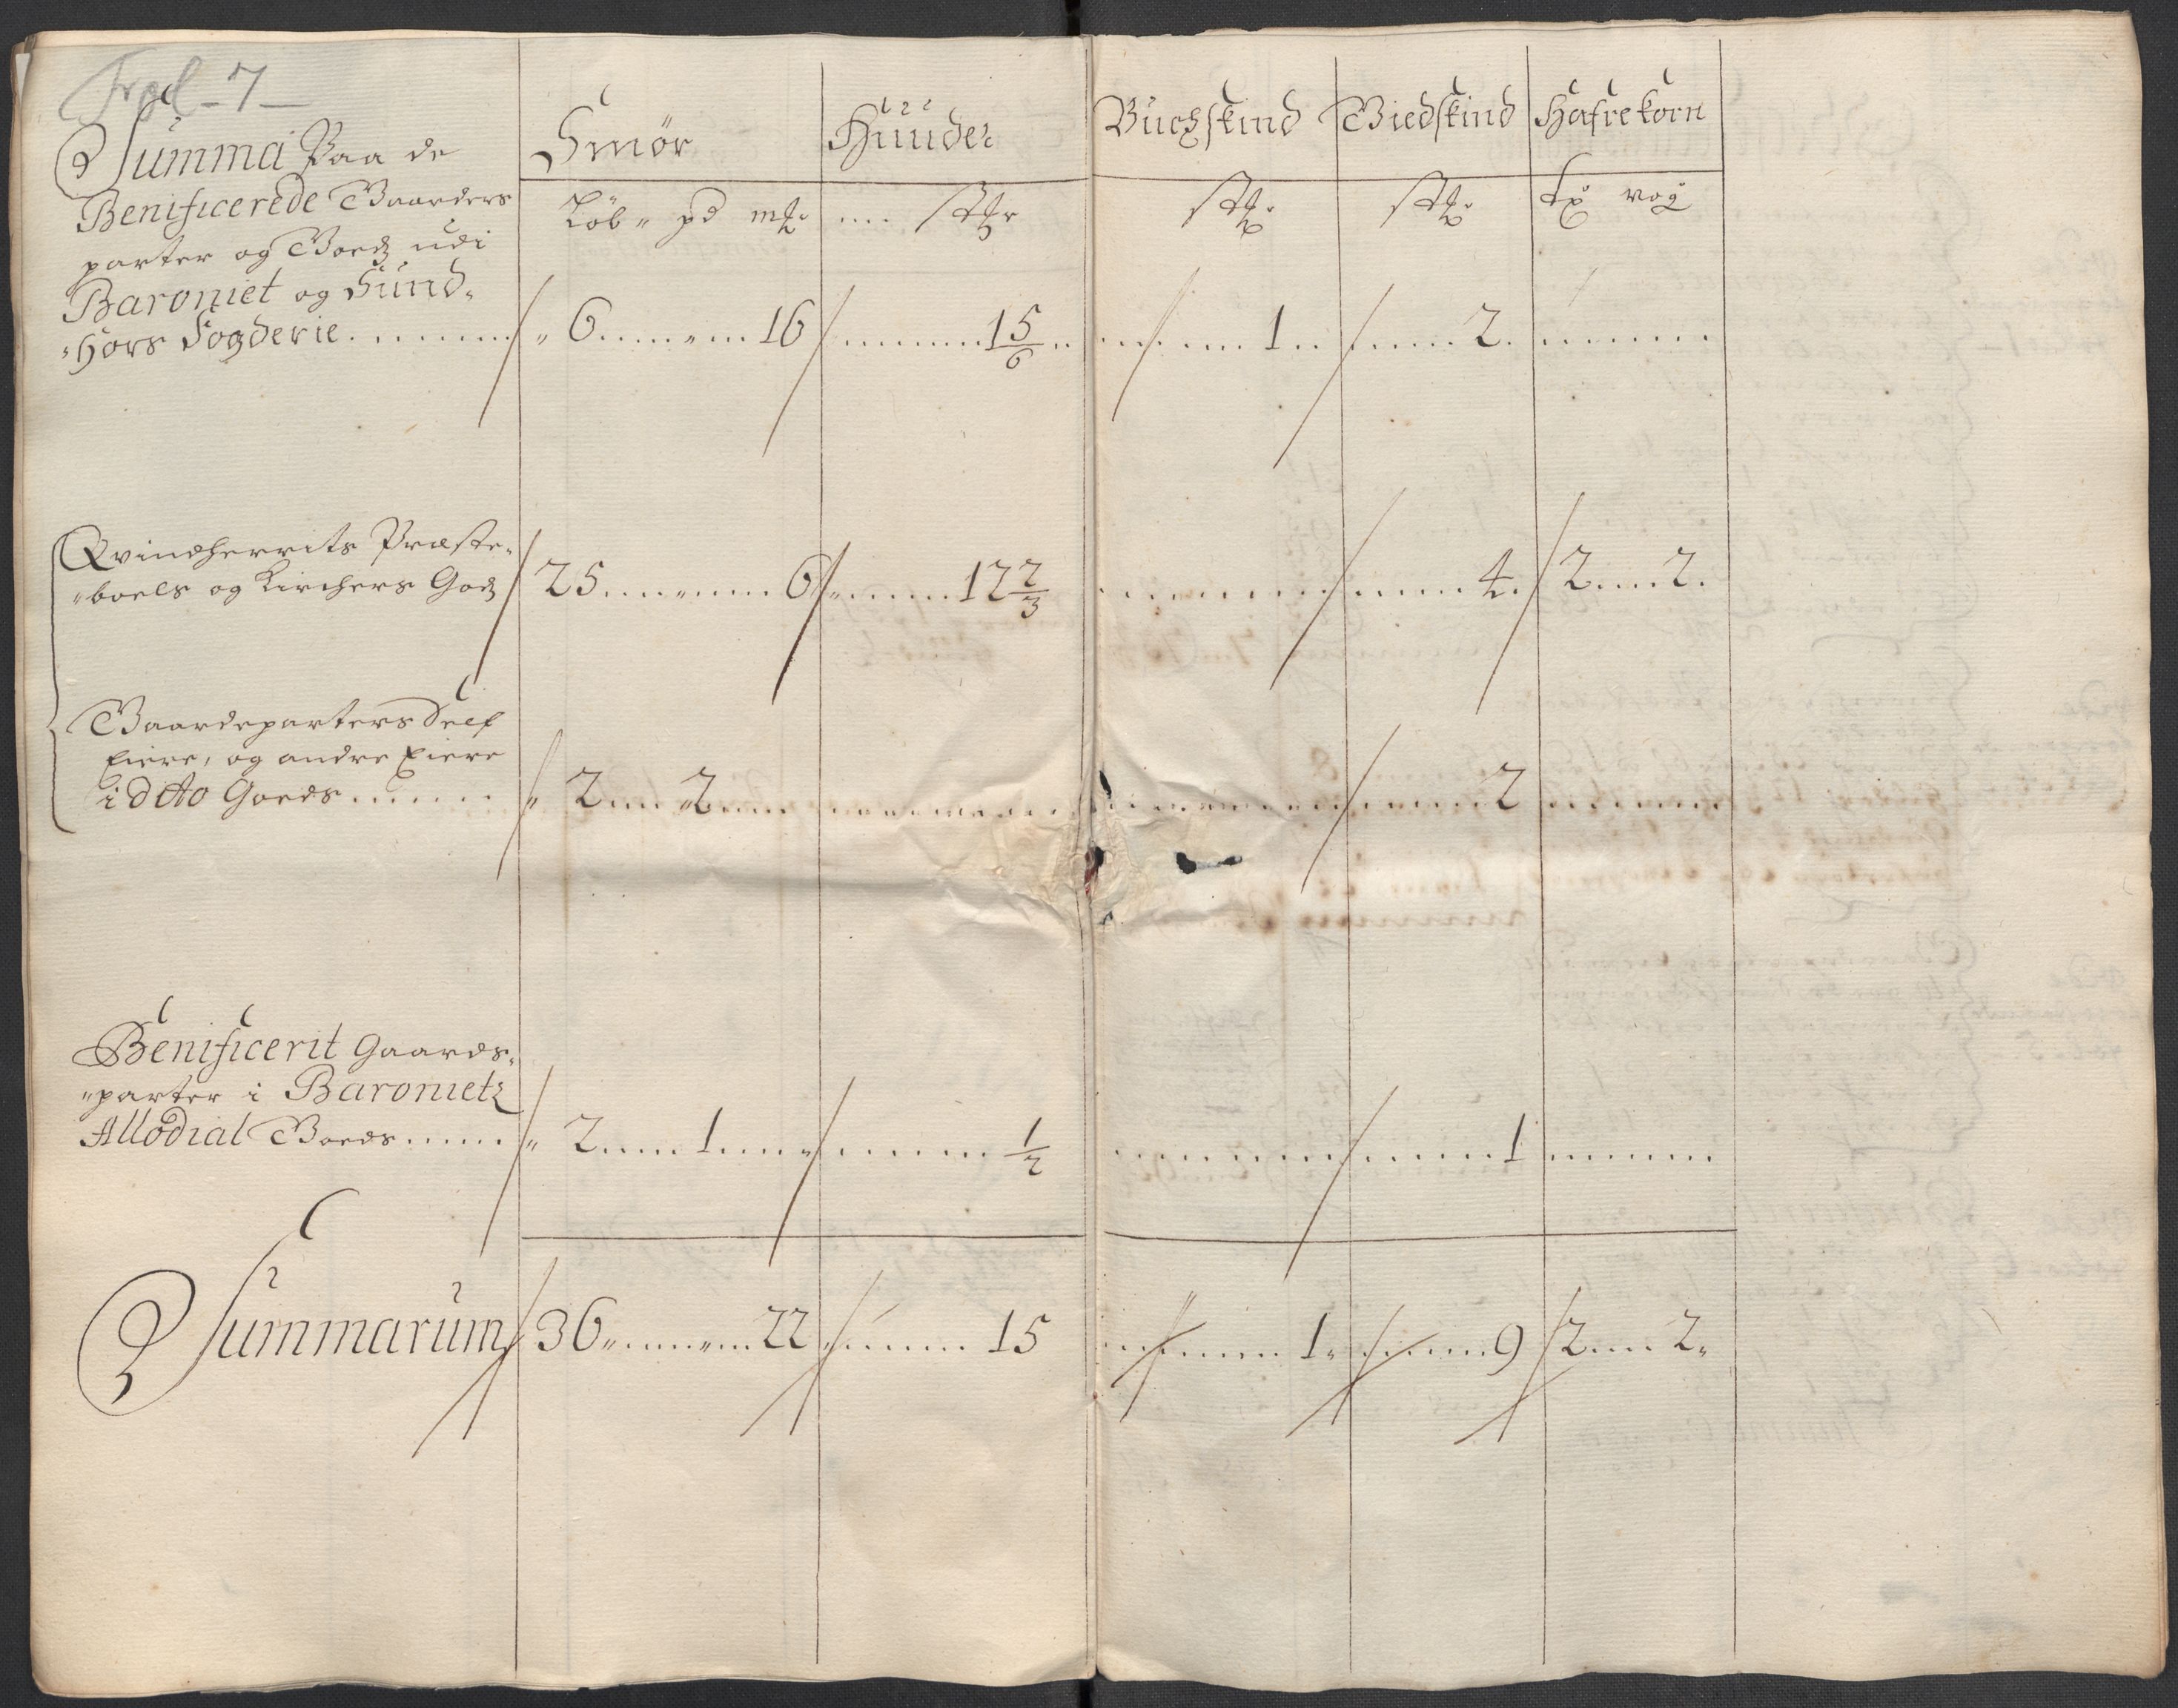 Fol - 7 -
Smør Huuder Buchskind Giedskind Hafrekorn
Løb pd mk stkr stk stk tø vog
Summa Paa de
Benificerede Gaarders
parter og Goeds udi
Baroniet og Sund-
Hors Fogderie 6 16 1 5/6 1 2
Qvindherrits Præste-
boels og Kirchers Gods 25 6 12 2/3 4 2 2
Gaardeparters Self
Eiere, og andre Eiere
i ditto Goeds 2 2 2
Benificerit Gaards-
parter i Baroniets
Allodial Goeds 2 1 1/2 1
Summarum 36 22 15 1 9 2 2